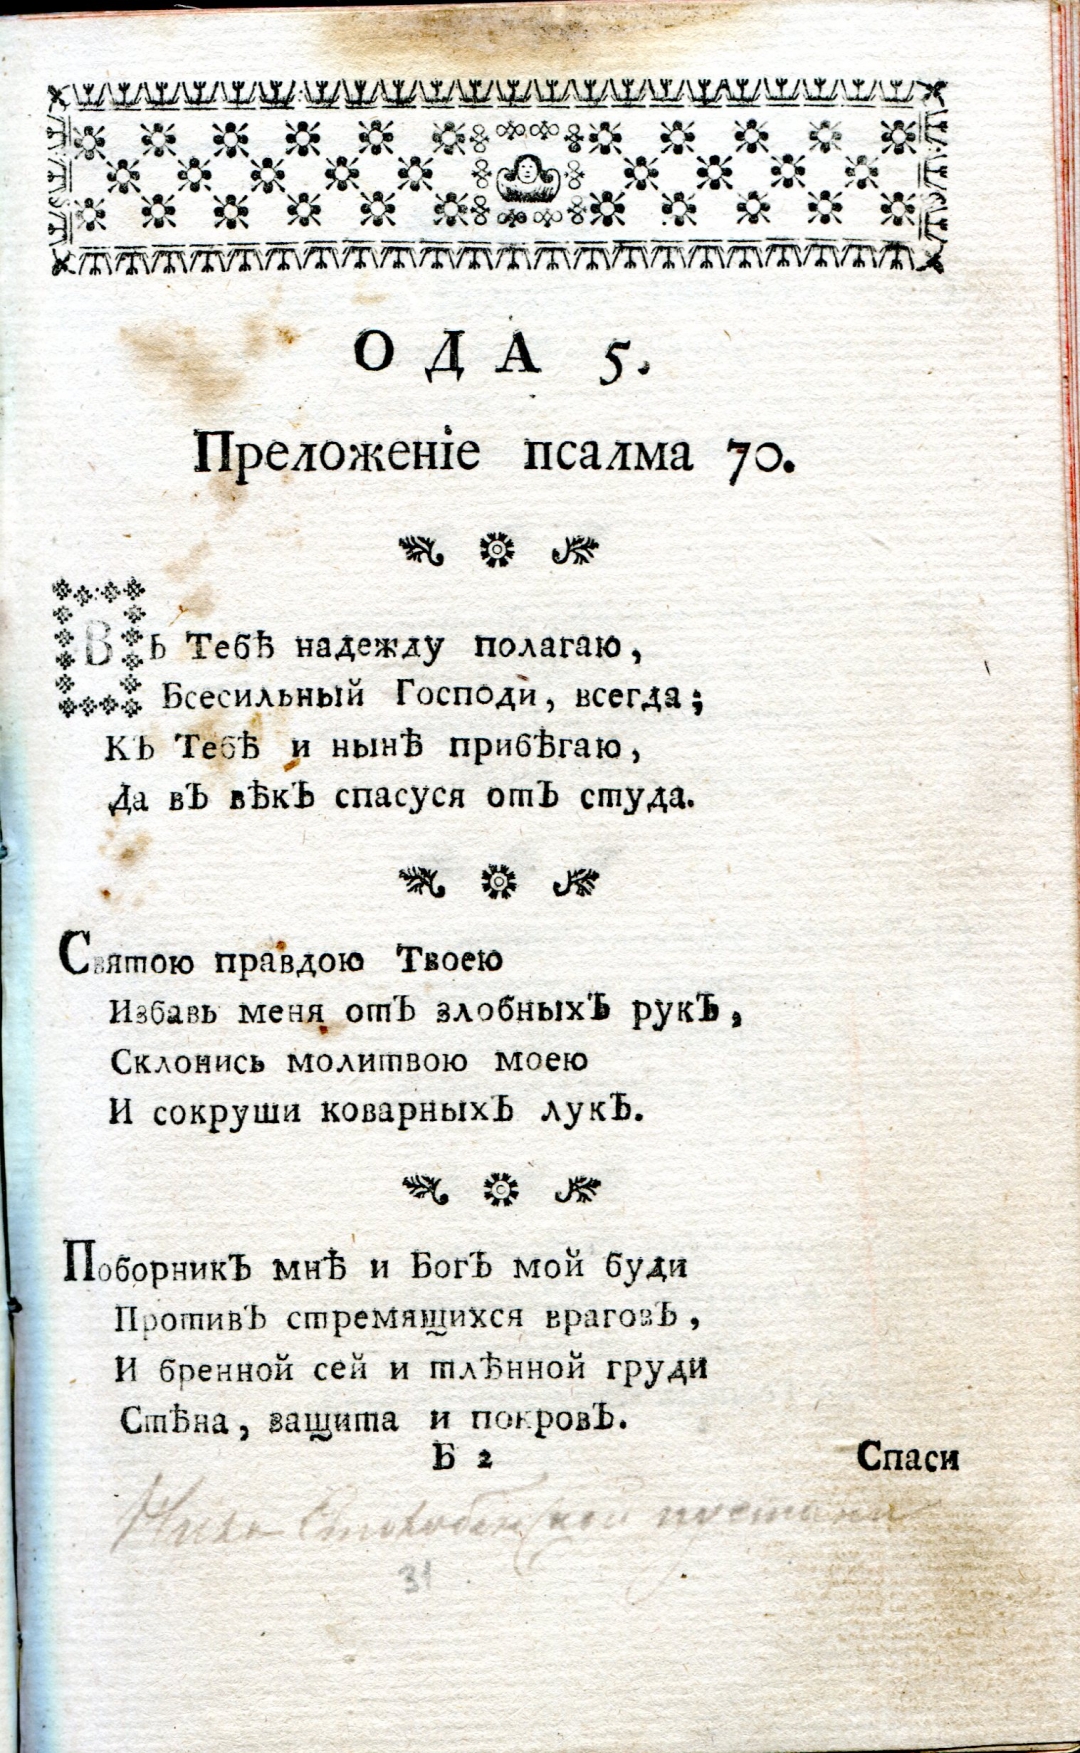 ОДА 5.
Преложеніе псалма 70.
Въ Тебѣ надежду полагаю,
Всесильный Господи, всегда;
Къ Тебѣ и нынѣ прибѣгаю,
Да въ вѣкъ спасуся отъ студа.
Святою правдою Твоею
Избавь меня отъ злобныхъ рукъ,
Склонись молитвою моею
И сокруши коварныхъ лукъ.
Поборникъ мнѣ и Богъ мой буди
Противъ стремящихся враговъ,
И бренной сей и тлѣнной груди
Стѣна, защита и покровъ.
Б 2
Спаси
пустыни
31